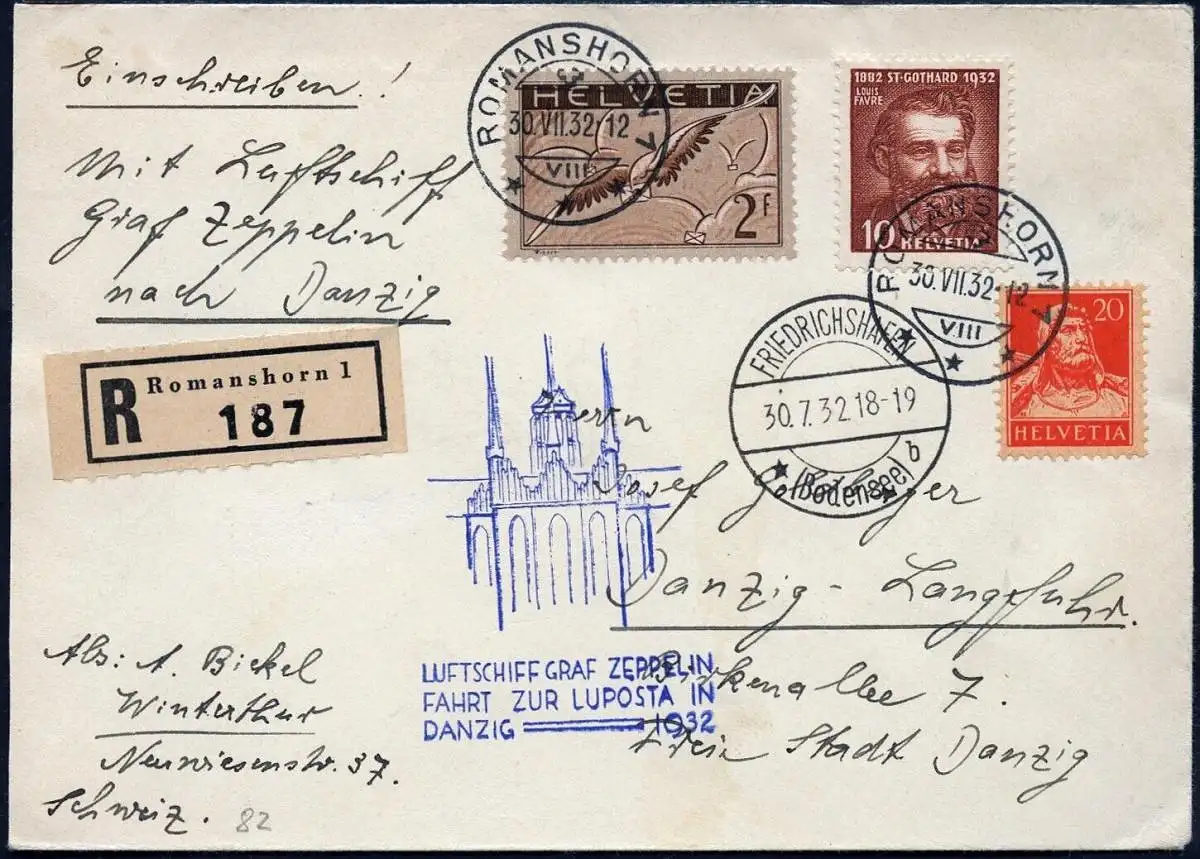 Einschreiben!
Mit Luftschiff
Graf Zeppelin
nach Danzig
R Romanshorn 1
187
ROMANSHORN
30.VII.32.-12
VIII
HELVETIA
2F
1882 ST·GOTHARD 1932
LOUIS
FAVRE
10 HELVETIA
ROMANSHORN
30.VII.32-12
VIII
20
HELVETIA
FRIEDRICHSHAFEN
30.7.32 18-19
(Bodensee) b
Herrn
Josef
Danzig-Langfuhr.
Birkenallee 7.
Freie Stadt Danzig
LUFTSCHIFF GRAF ZEPPELIN
FAHRT ZUR LUPOSTA IN
DANZIG 1932
Abs: A. Bickel
Winterthur
Neuwiesenstr. 37.
Schweiz.
82